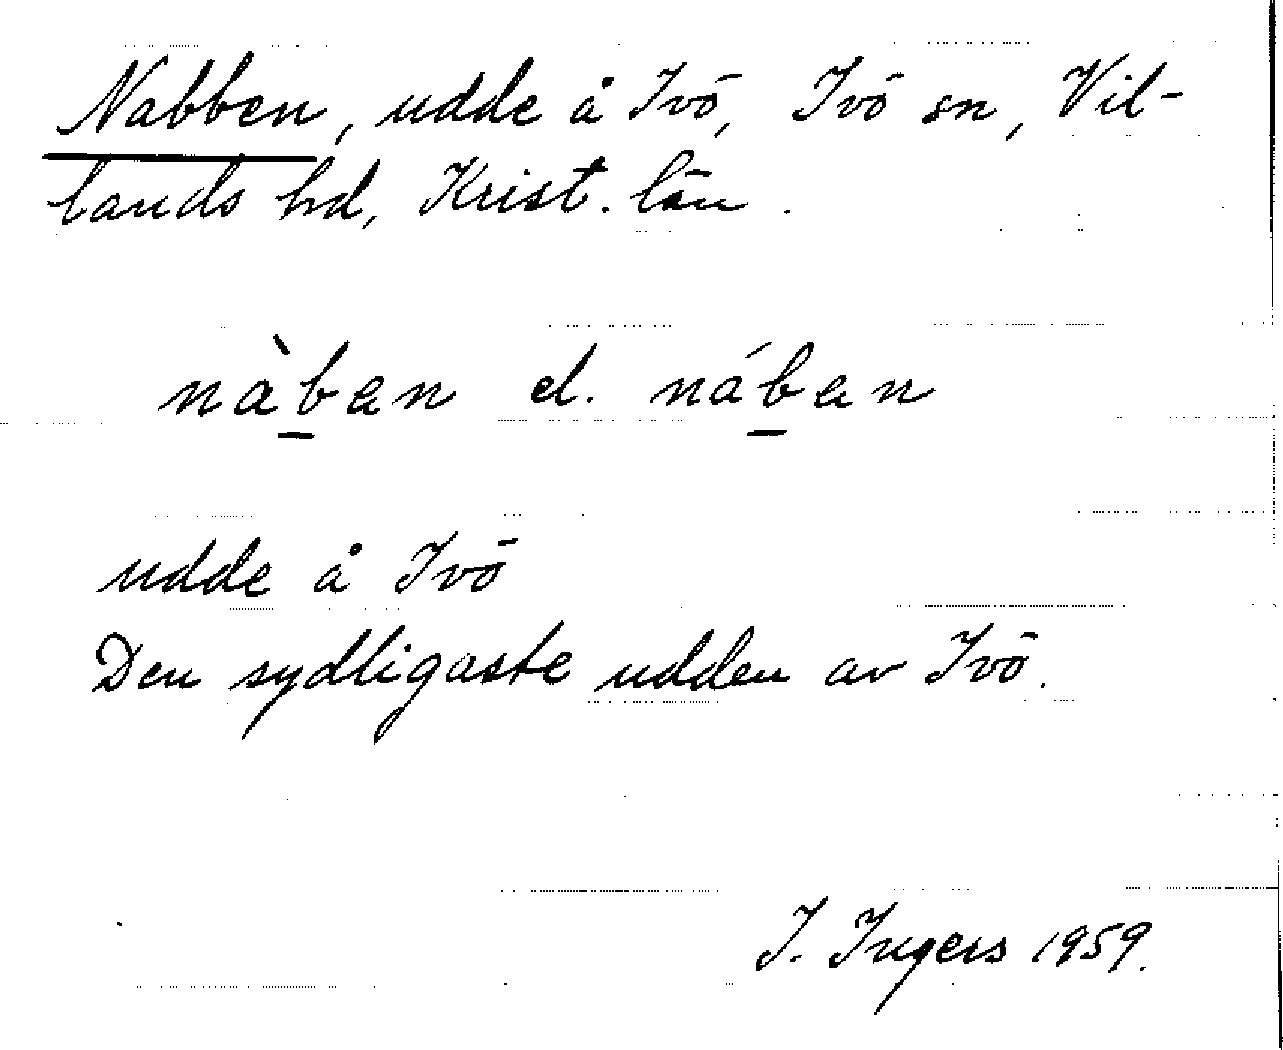 Nabben, udde å Ivö, Ivö sn, Vil-
lands hd, Krist. län.
nàb̲en el. náb̲en
udde å Ivö
Den sydligaste udden av Ivö.
I. Ingers 1959.